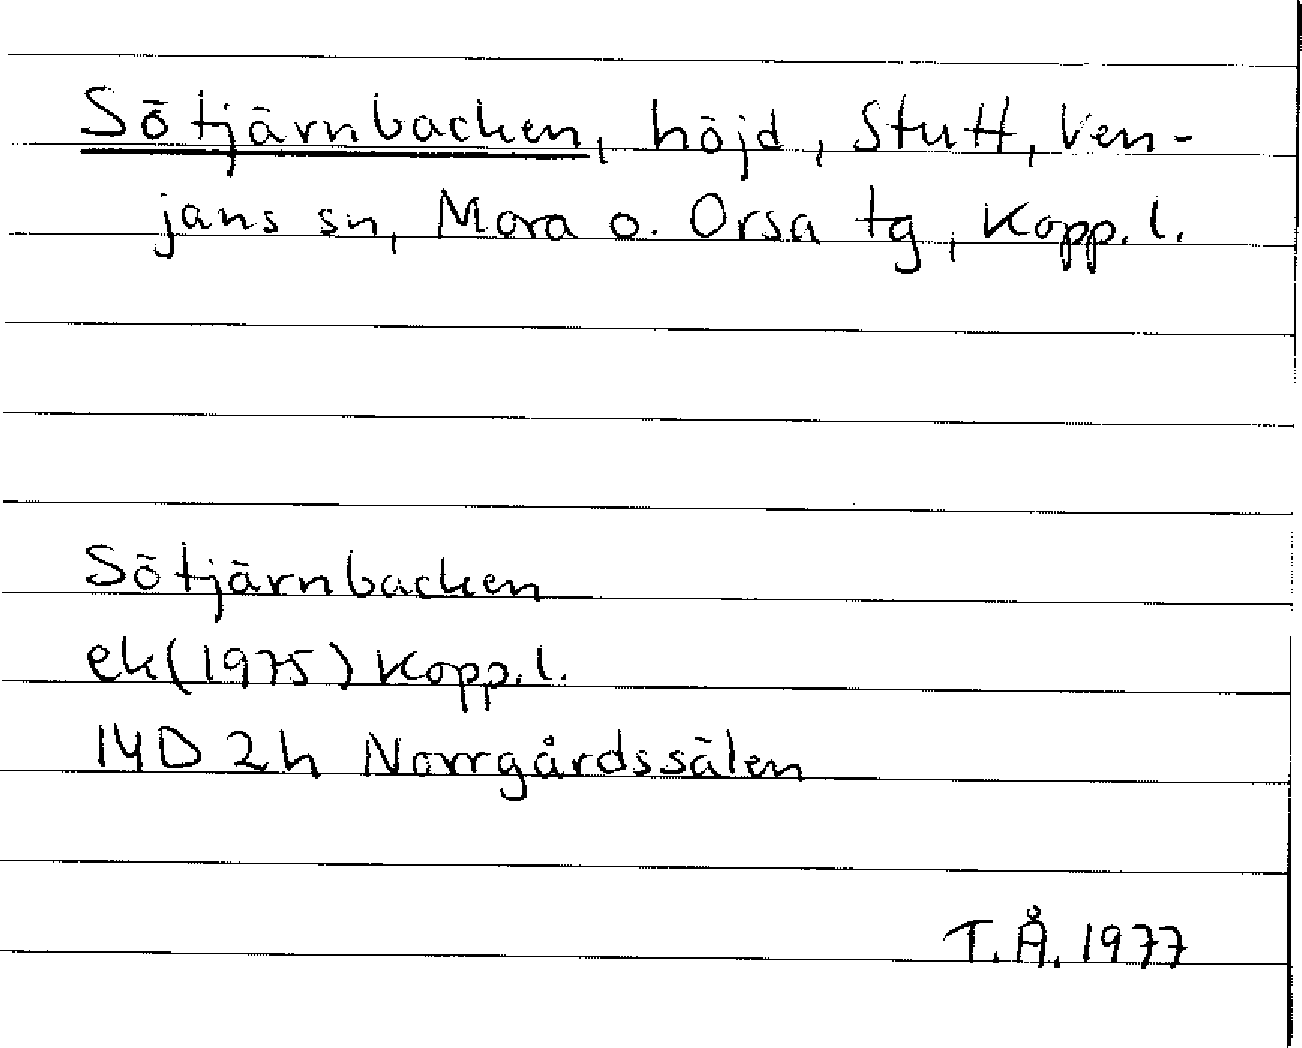 Sötjärnbacken, höjd, Stutt, Ven-
jans sn, Mora o. Orsa tg, Kopp. l.
Sötjärnbacken
ek (1975) Kopp. l.
14D 2h Norrgårdssälen
T. Å. 1977